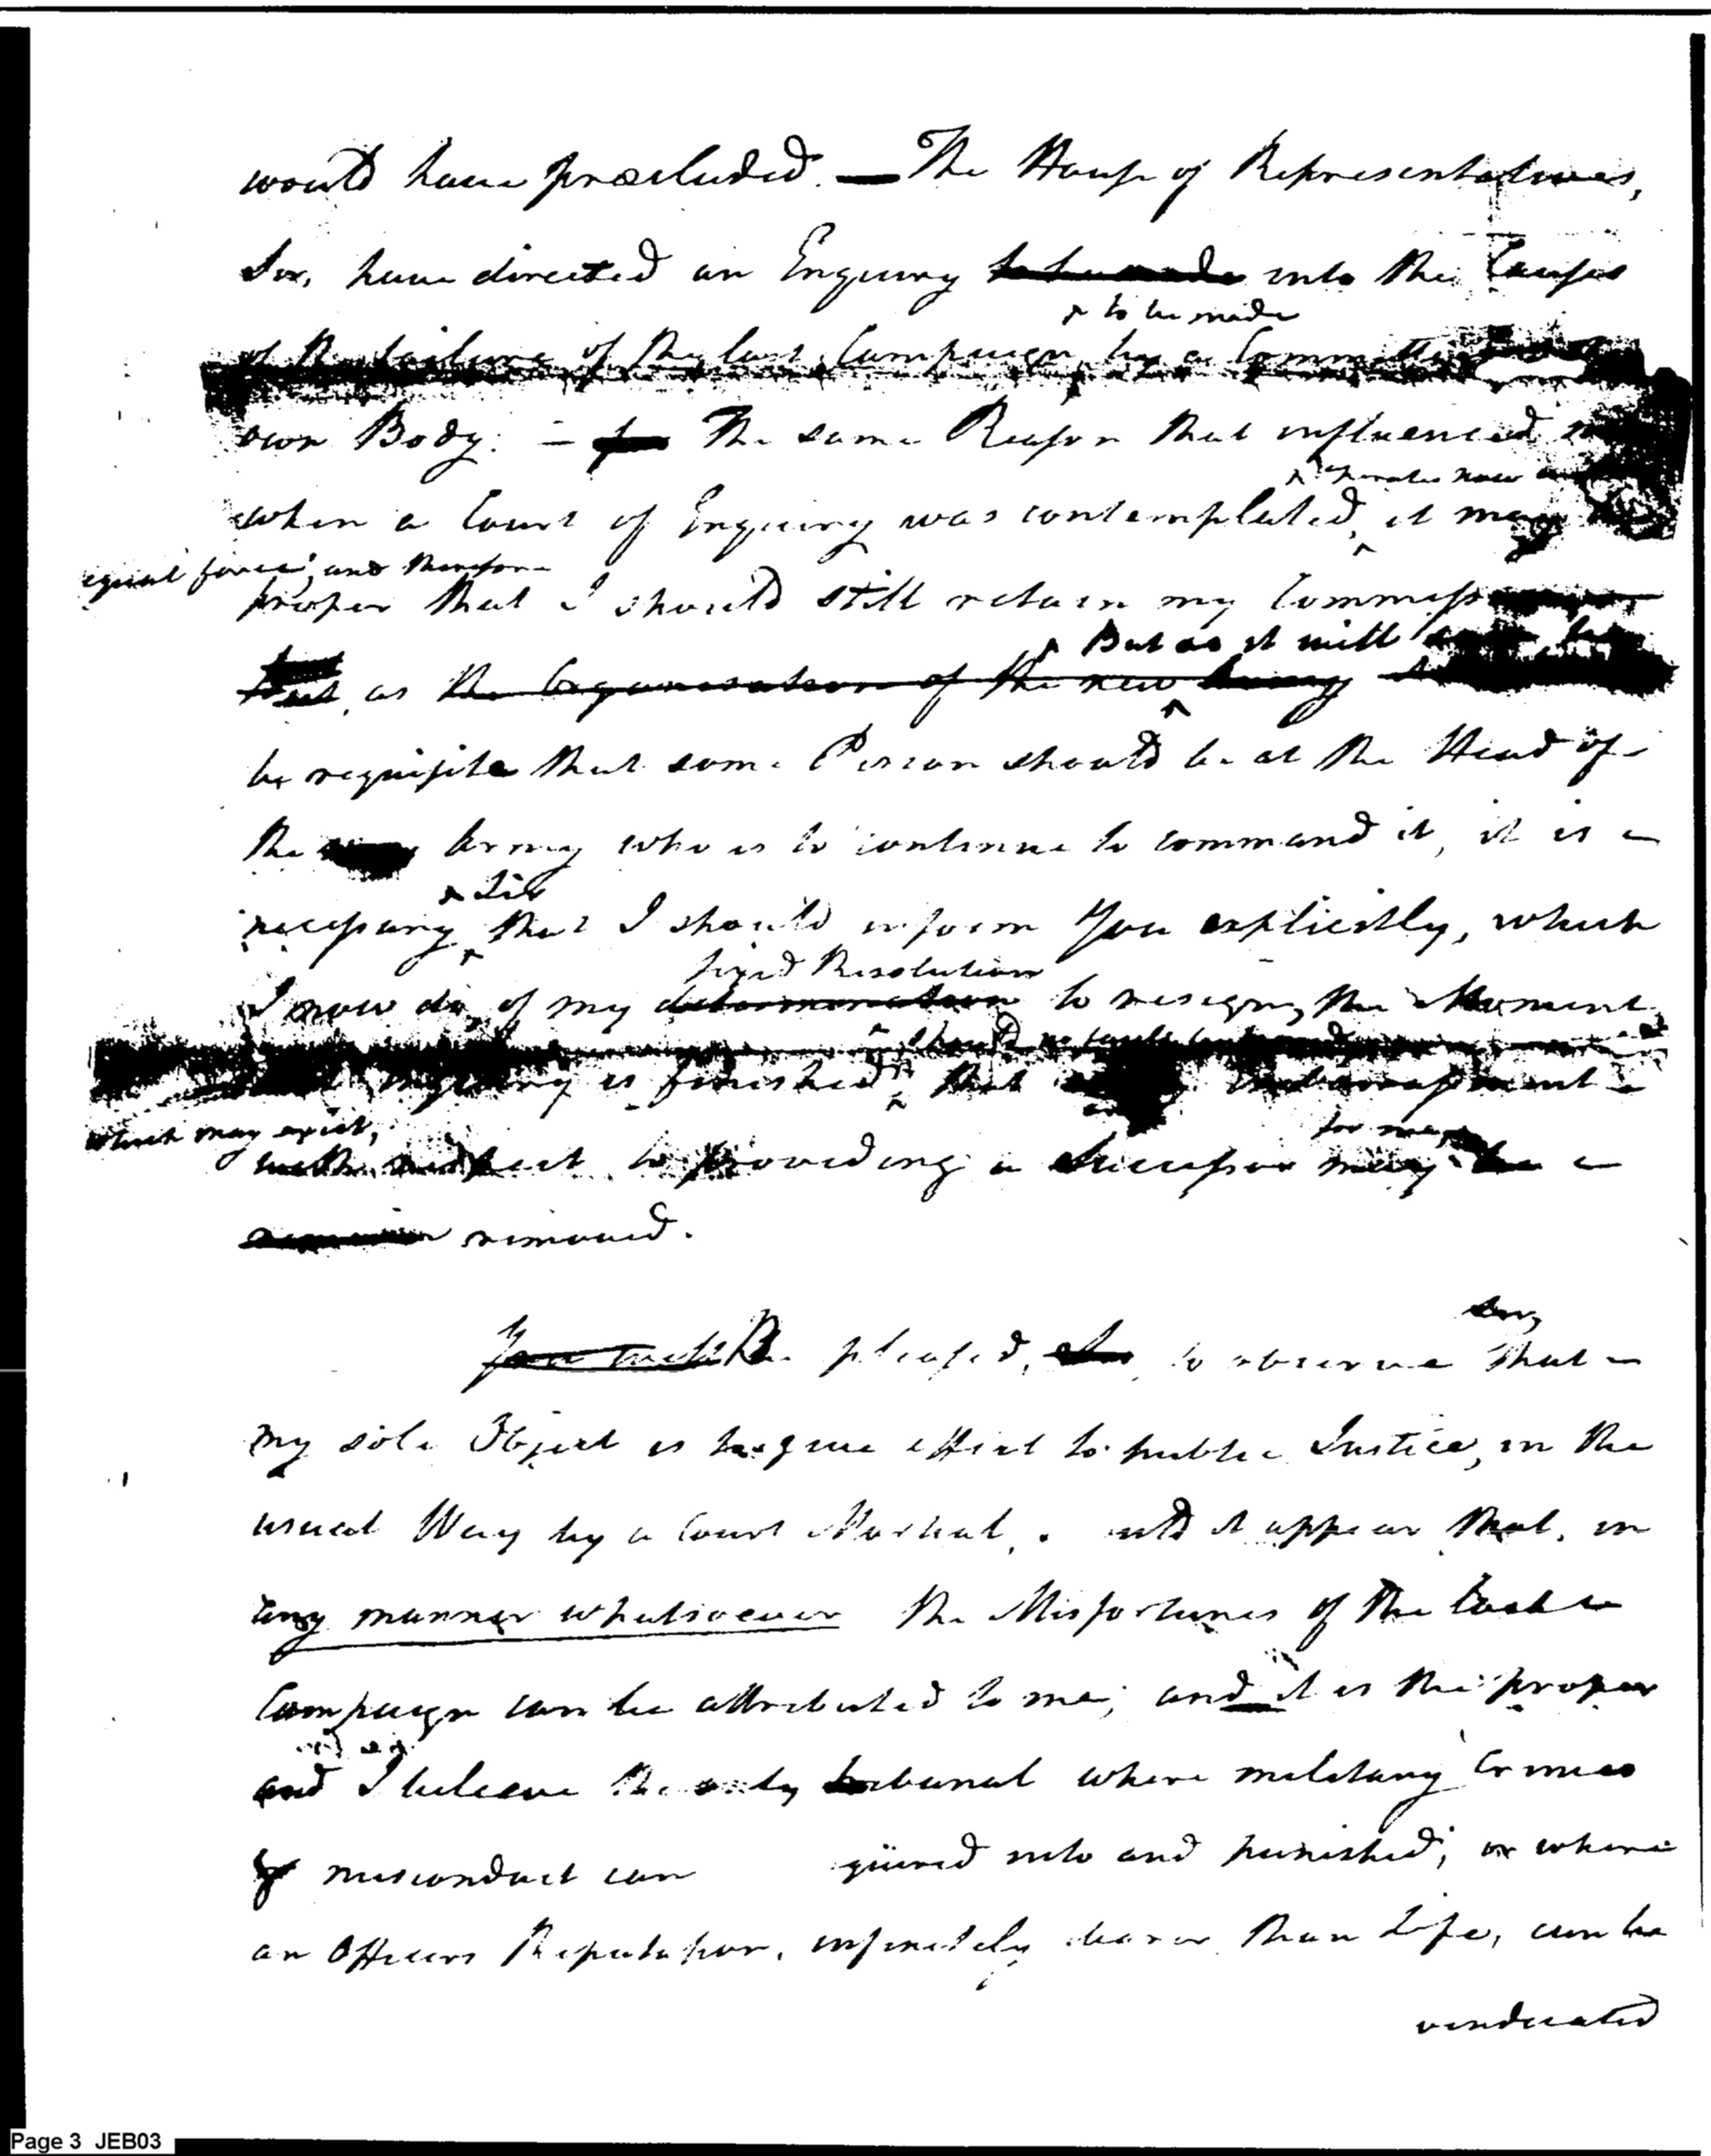 would have precluded. — The House of Representatives,
Sir, have directed an Enquiry to be made into the Causes
to be made
of the failure of the last Campaign by a Committee
own Body. — for The same Reason that influenced
operates now
when a Court of Enquiry was contemplated, it may
equal force, and therefore
proper that I should still retain my Commiss
But as it will
but, as the Organisation of the new Army
be requisite that some Person should be at the Head of
the Army who is to continue to command it, it is
Sir
necessary that I should inform You explicitly, which
fixed Resolution
I now do, of my determination to resign, the Moment
should
enquiry is finished that embarrassment
which may exist,
for me
with respect to providing a Successor may be
removed.
Sir,
You will Be pleased, Sir, to observe that
my sole Object is to give effect to public Justice, in the
usual Way by a Court Martial. uld it appear that, in
any manner whatsoever the Misfortunes of the last
Campaign can be attributed to me; and it is the proper
and I beleeve the only tribunal where military Crimes
or misconduct can quired into and punished; or where
an Officers Reputation, infinitely dearer than Life, can be
vindicated
Page 3 JEB03